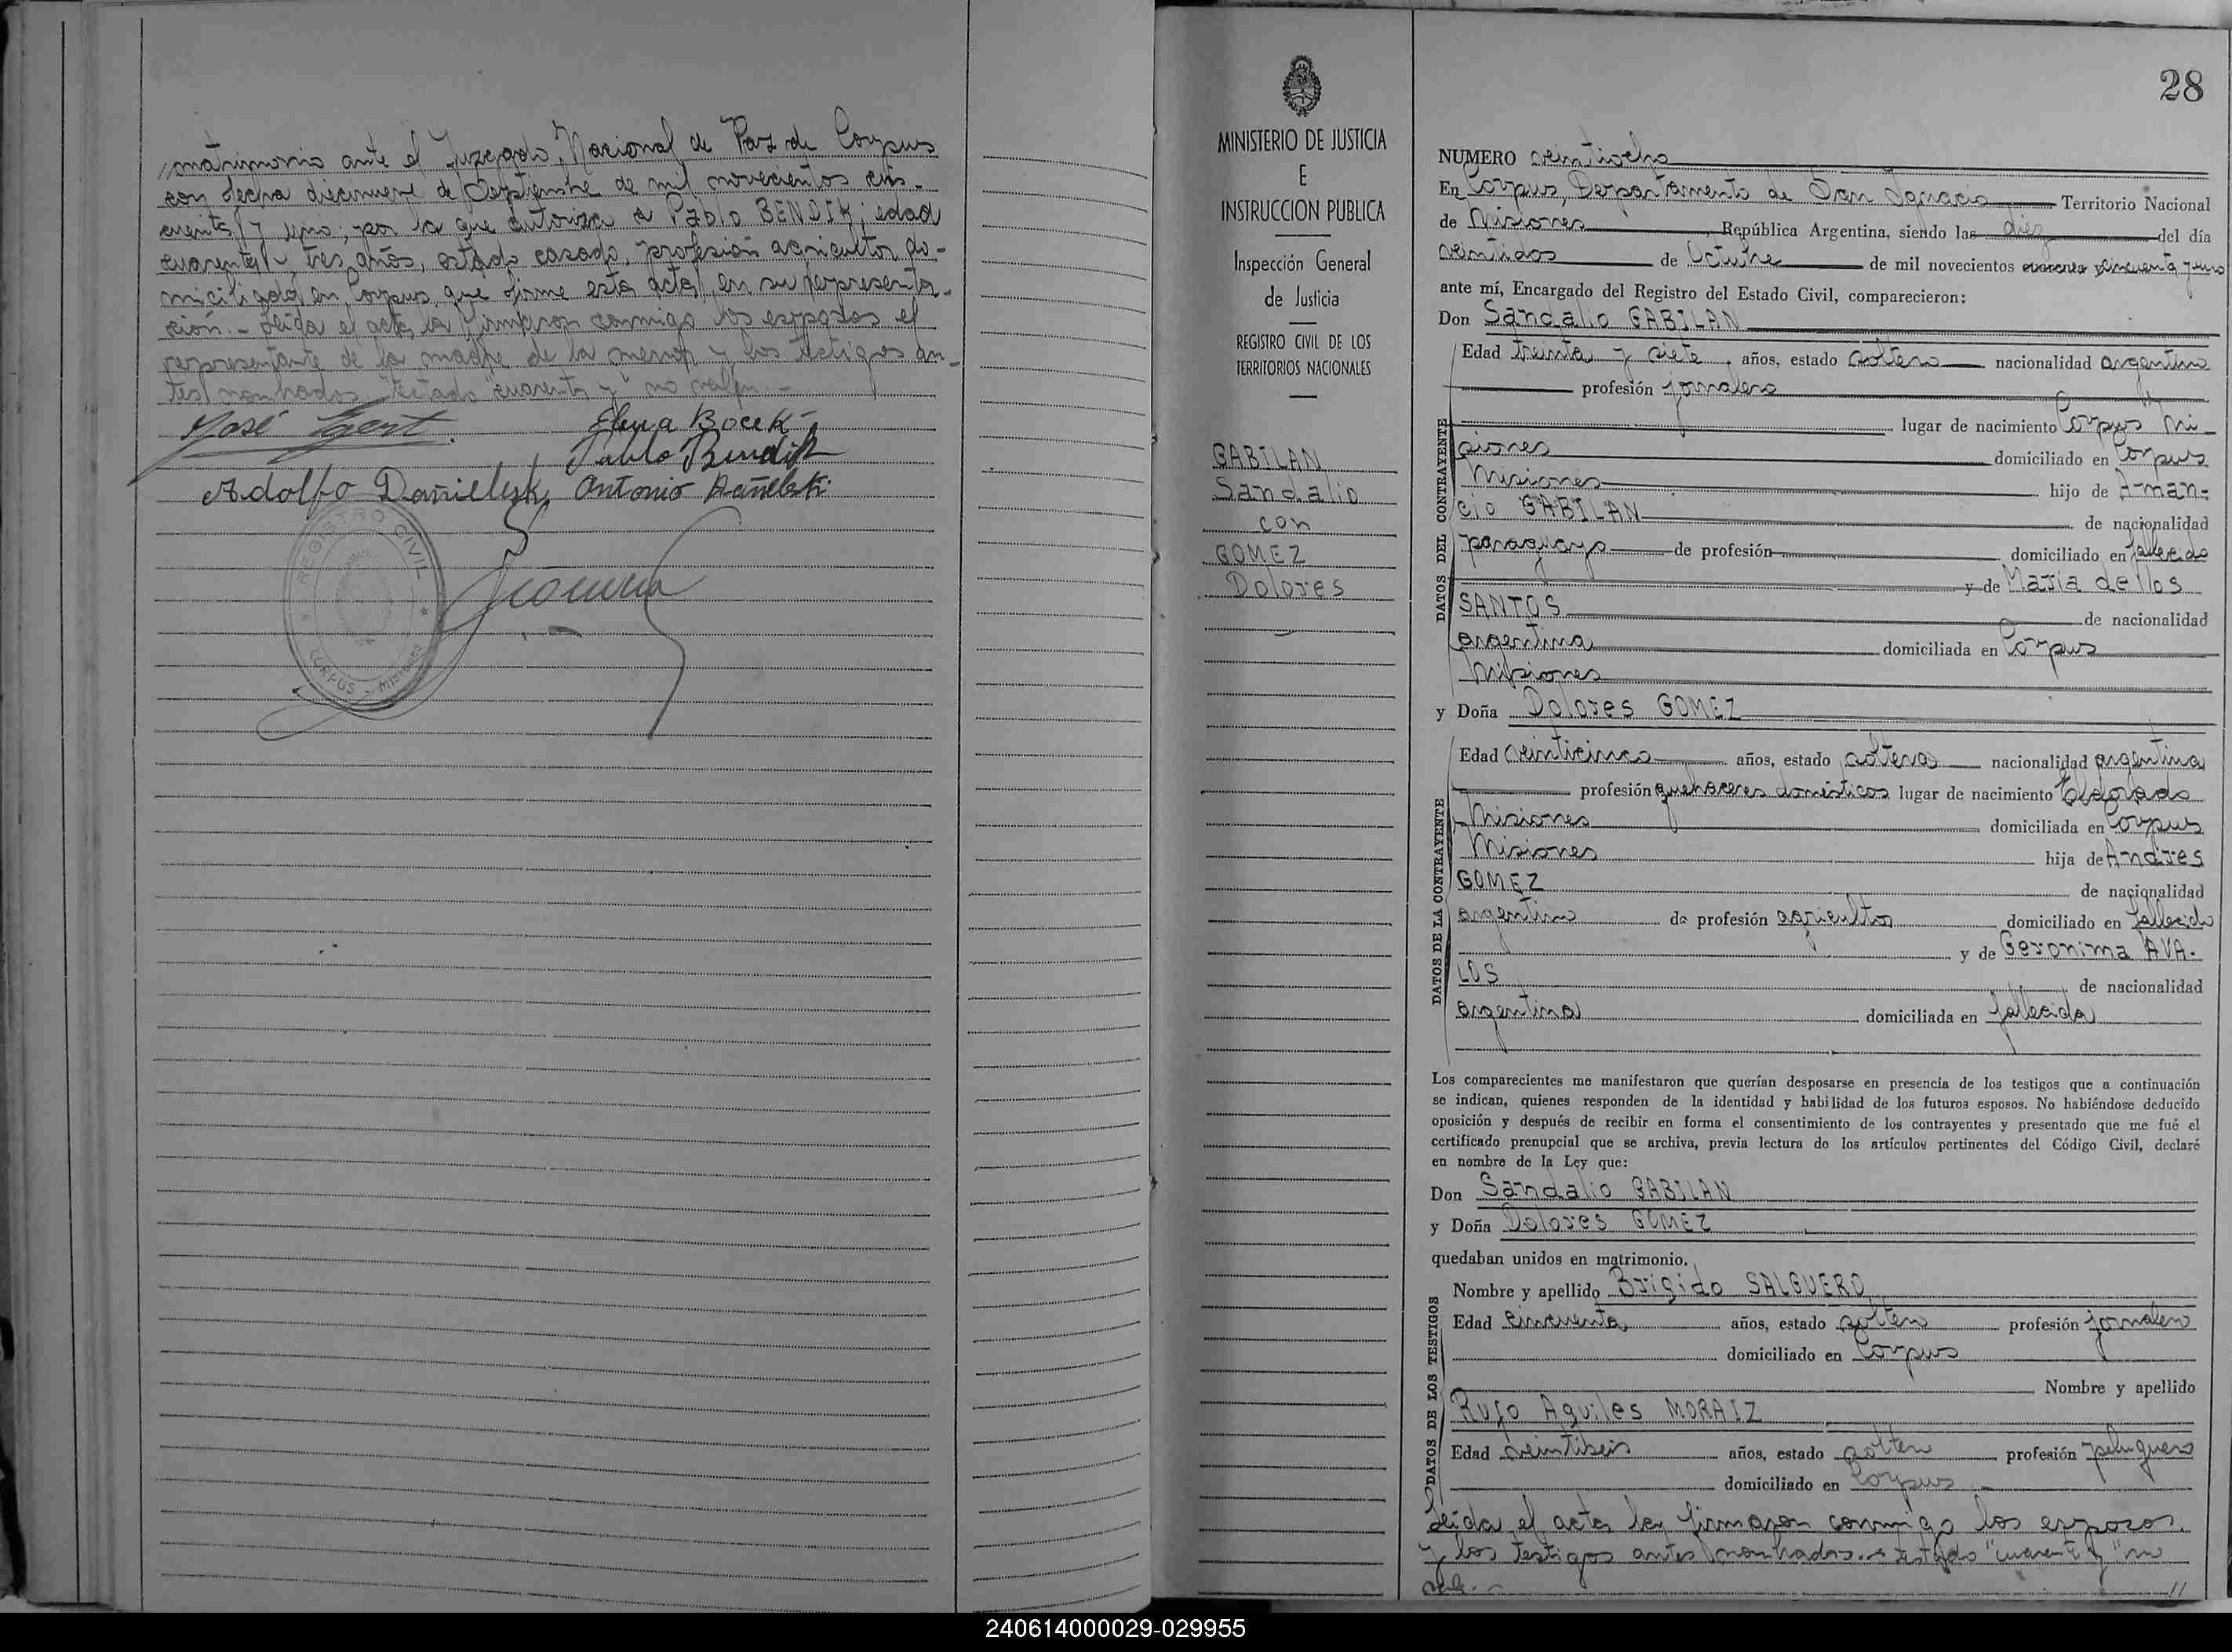 //matrimonio ante el Juzgado Nacional de Paz de Corpus
con fecha diecinueve de Septiembre de mil novecientos cin-
cuenta y uno, por la que autoriza a Pablo BENDIK; edad
cuarenta y tres años, estado casado, profesión agricultor do-
miciliado en Corpus que firme esta acta en su representa-
ción.- Leida el acta la firmaron conmigo los esposos el
representante de la madre de la menor y los testigos an-
tes nombrados "testado "cuarenta y" no valen.-
José Egert.
Elena Bocek
Pablo Bendik
Adolfo Antonio
REGISTRO CIVIL
CORPUS - Misiones
28
MINISTERIO DE JUSTICIA
E
INSTRUCCION PUBLICA
Inspección General
de Justicia
REGISTRO CIVIL DE LOS
TERRITORIOS NACIONALES
GABILAN
Sandalio
con
GOMEZ
Dolores
NUMERO veintiocho
En Corpus, Departamento de San Ignacio Territorio Nacional
de Misiones, República Argentina, siendo las diez del día
veintidos de Octubre de mil novecientos cuarenta y cincuenta y uno
ante mí, Encargado del Registro del Estado Civil, comparecieron:
Don Sandalio GABILAN
DATOS DEL CONTRAYENTE
Edad treinta y siete, años, estado soltero nacionalidad argentino
profesión jornalero
lugar de nacimiento Corpus Mi-
siones domiciliado en Corpus
Misiones hijo de Aman-
cio GABILAN de nacionalidad
paraguayo de profesión domiciliado en fallecido
y de Maria de los
SANTOS de nacionalidad
argentina domiciliada en Corpus
Misiones
y Doña Dolores GOMEZ
DATOS DE LA CONTRAYENTE
Edad veinticinco años, estado soltera nacionalidad argentina
profesión quehaceres domésticos lugar de nacimiento Eldorado
Misiones domiciliada en Corpus
Misiones hija de Andres
GOMEZ de nacionalidad
argentino de profesión agricultor domiciliado en fallecido
y de Geronima AVA-
LOS de nacionalidad
argentina domiciliada en fallecida
Los comparecientes me manifestaron que querían desposarse en presencia de los testigos que a continuación
se indican, quienes responden de la identidad y habilidad de los futuros esposos. No habiéndose deducido
oposición y después de recibir en forma el consentimiento de los contrayentes y presentado que me fué el
certificado prenupcial que se archiva, previa lectura de los artículos pertinentes del Código Civil, declaré
en nombre de la Ley que:
Don Sandalio GABILAN
y Doña Dolores GOMEZ
quedaban unidos en matrimonio.
DATOS DE LOS TESTIGOS
Nombre y apellido Brigido SALGUERO
Edad cincuenta años, estado soltero profesión jornalero
domiciliado en Corpus
Nombre y apellido
Rufo Aquiles MORAIZ
Edad veintiseis años, estado soltero profesión peluquero
domiciliado en Corpus
Leida el acta la firmaron conmigo los esposos
y los testigos antes nombrados.- testado "cuarenta y" no
vale.- //
240614000029-029955